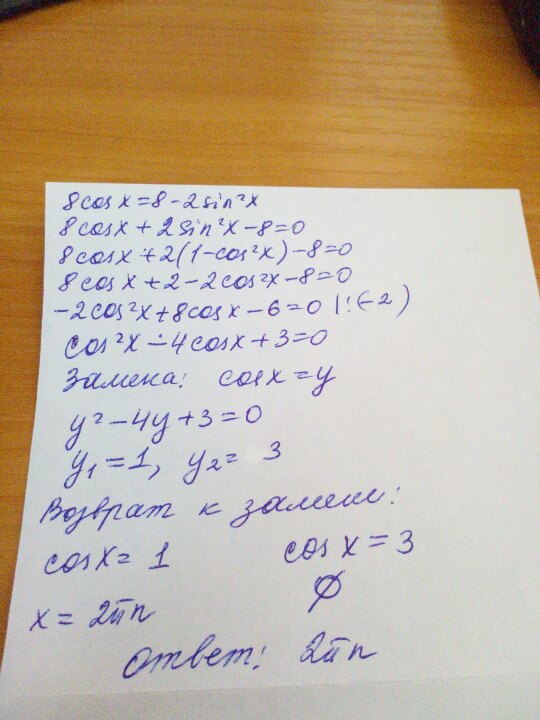 8cosx=8-2sin²x
8cosx+2sin²x-8=0
8cosx+2(1-cos²x)-8=0
8cosx+2-2cos²x-8=0
-2cos²x+8cosx-6=0 |:(-2)
cos²x-4cosx+3=0
Замена: cosx=y
y²-4y+3=0
y₁=1, y₂= 3
Возврат к замене:
cosx= 1 cosx=3
x= 2πn ∅
Ответ: 2πn